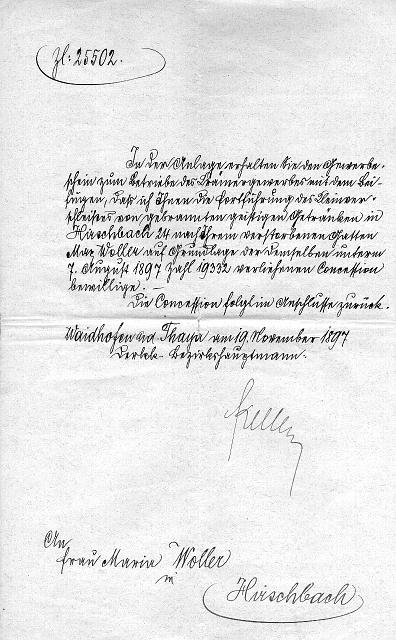 Zl: 25502.
In der Anlage erhalten Sie den Gewerbe-
schein zum Betriebe des Krämergewerbes mit dem Bei-
fügen, daß ich Ihnen die Fortführung des Kleinver-
schleißes von gebrannten geistigen Getränken in
Hirschbach 24 nach Ihrem verstorbenen Gatten
Max Woller auf Grundlage der demselben unterm
7. August 1897 Zahl 19332 verliehenen Concession
bewillige. —
Die Concession folgt im Anschlusse zurück.
Waidhofen a/d Thaya am 19. November 1897
Der k.k. Bezirkshauptmann.
An
Frau Maria Woller
in
Hirschbach